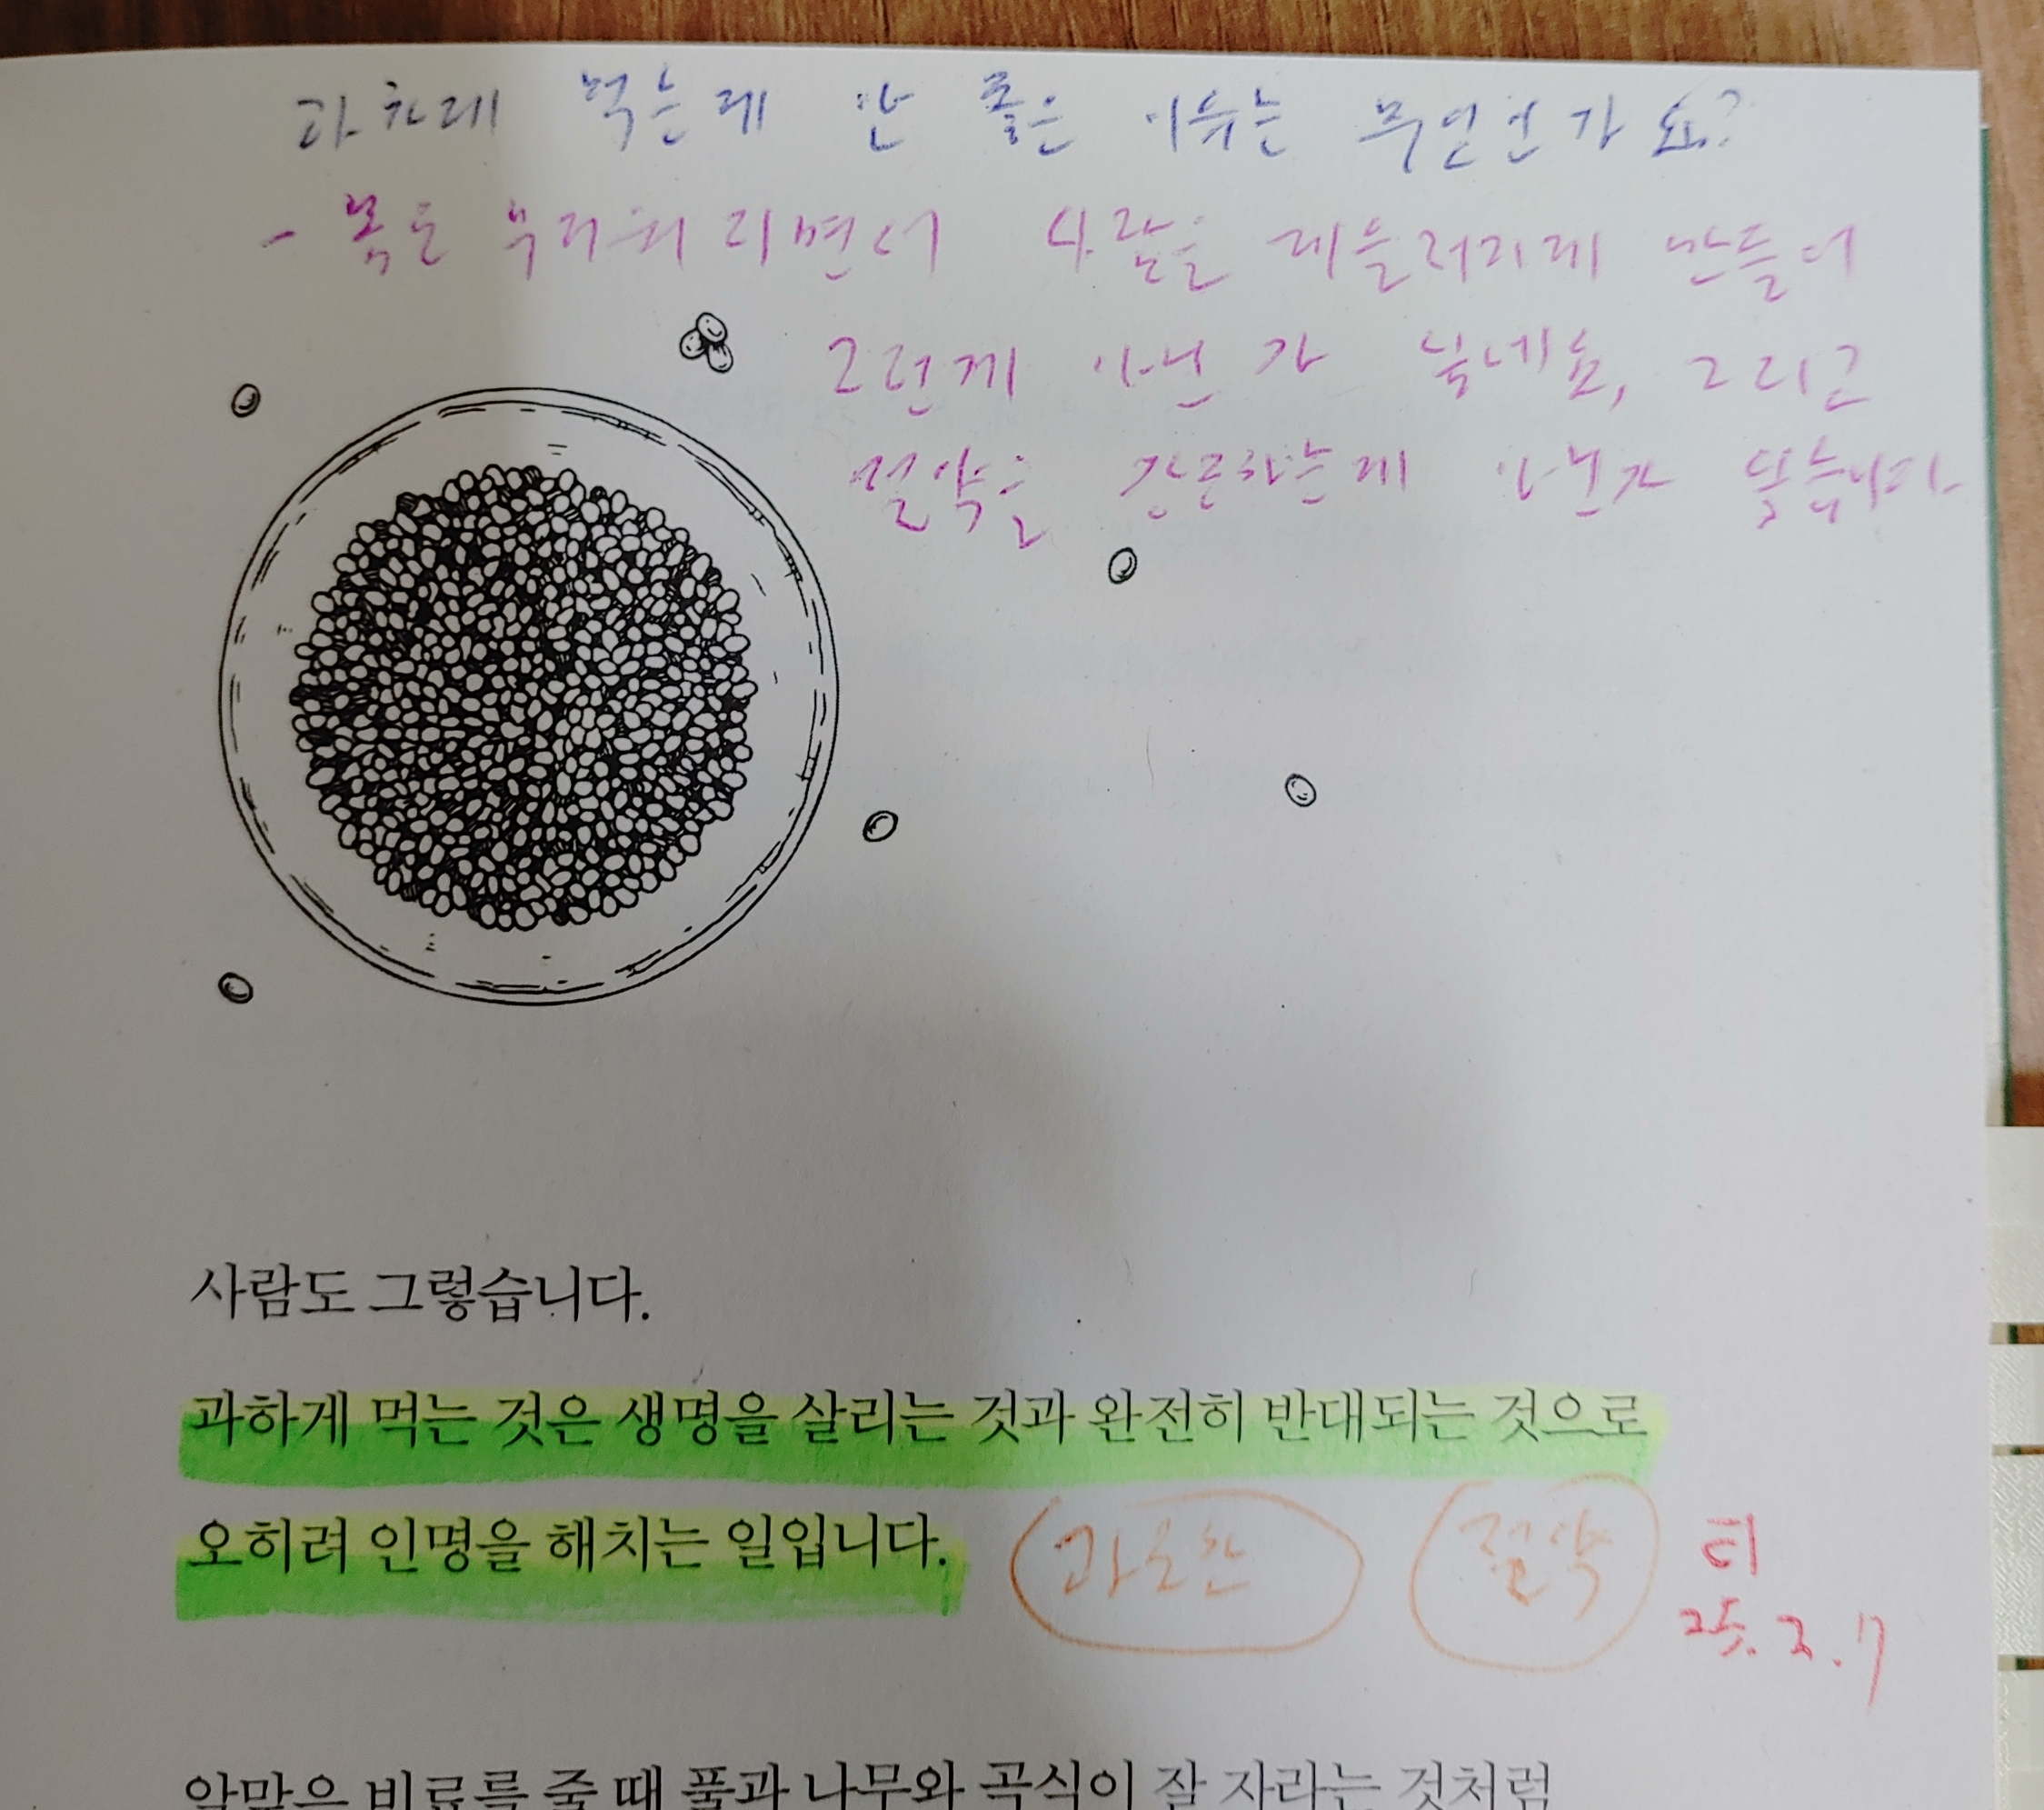 과하게 먹는게 안 좋은 이유는 무엇인가요?
- 몸을 사람을 게을러지게 만들어
그런게 아닌가 싶네요, 그리고
절약을 강조하는게 아닌가 싶습니다
사람도 그렇습니다.
과하게 먹는 것은 생명을 살리는 것과 완전히 반대되는 것으로
오히려 인명을 해치는 일입니다.
절약
25. 2. 17
알맞은 비료를 줄 때 풀과 나무와 곡식이 잘 자라는 것처럼